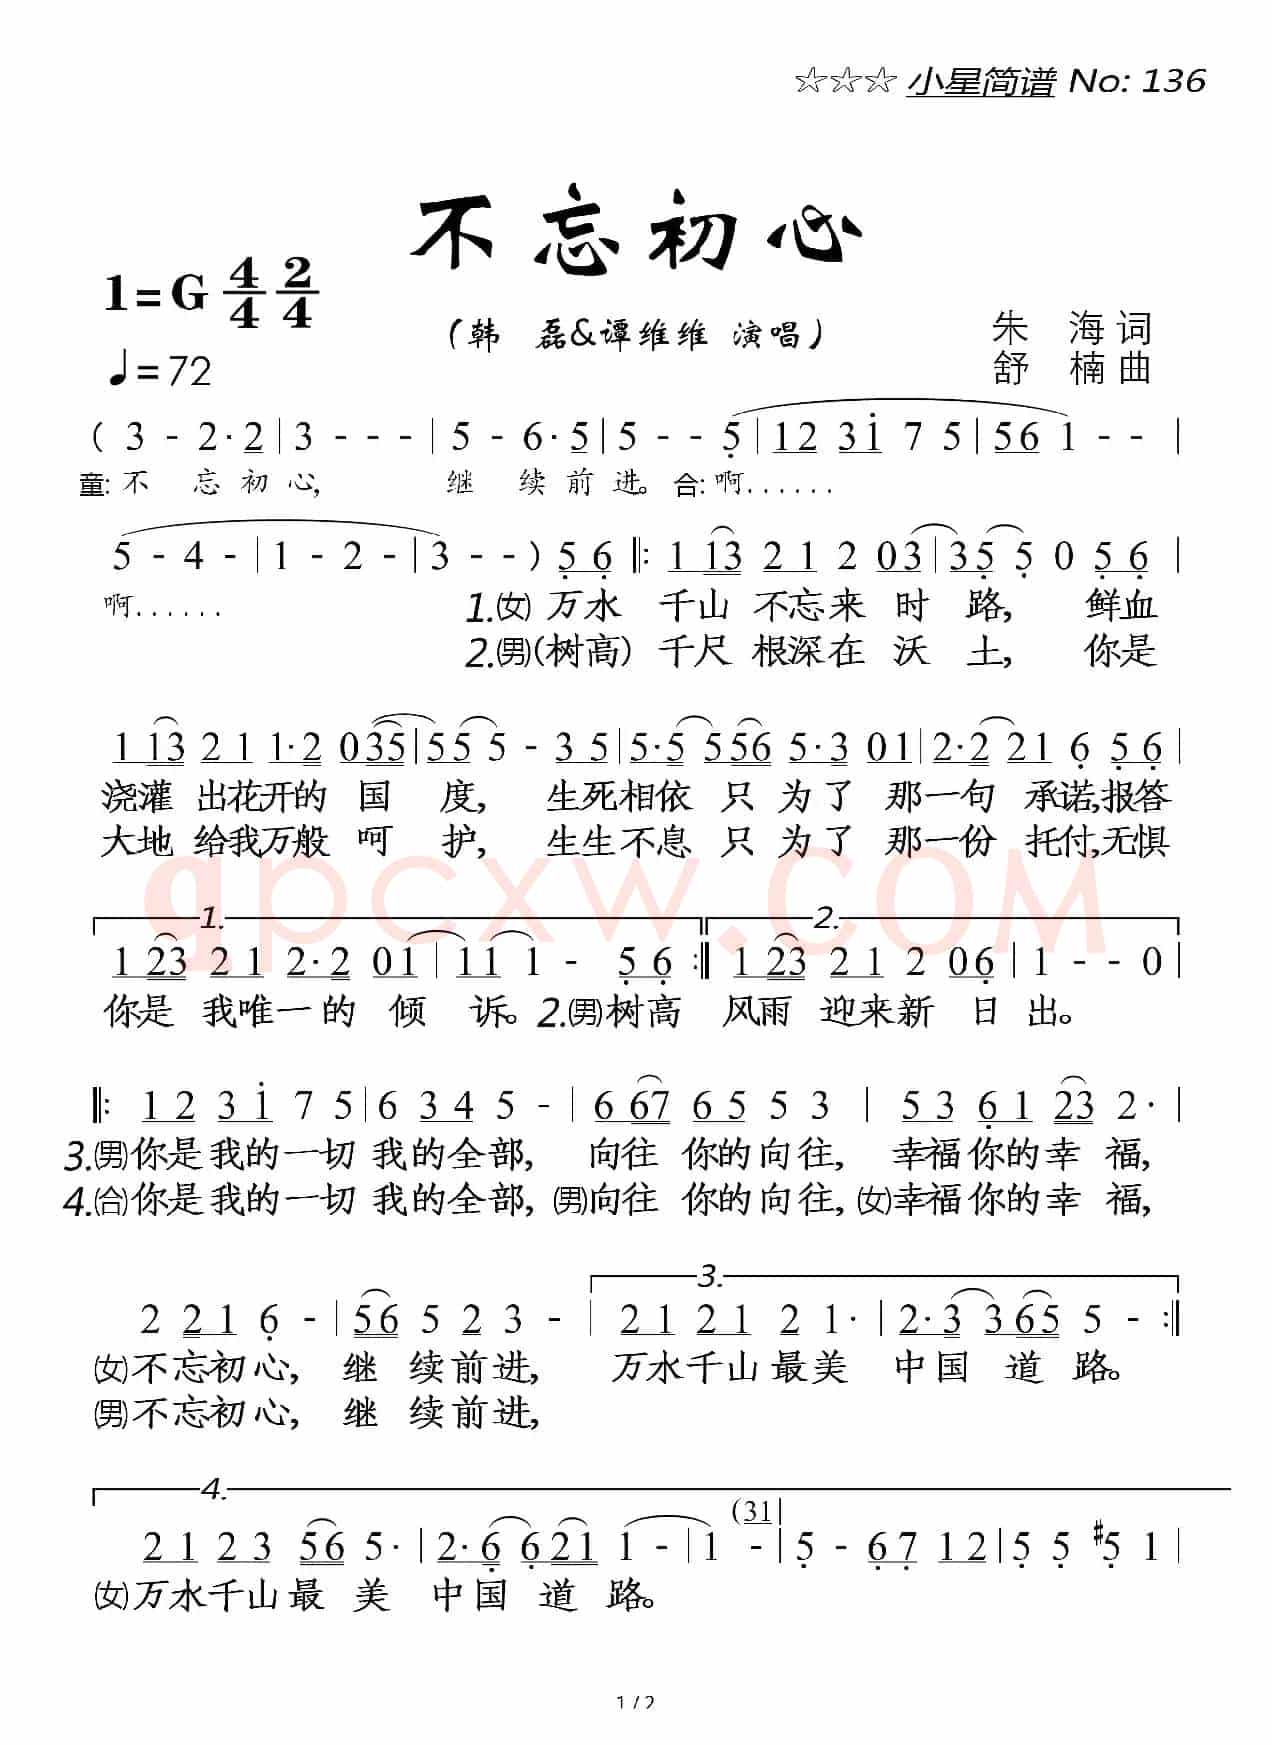 ☆☆☆ 小星简谱 No: 136
不忘初心
1=G 4/4 2/4
（韩 磊&谭维维 演唱）
朱 海 词
♩=72
舒 楠 曲
( 3 - 2·2 | 3 - - - | 5 - 6·5 | 5 - - 5 | 12 3i 7 5 | 56 1 - - |
童: 不 忘 初 心, 继 续 前 进。 合: 啊......
5 - 4 - | 1 - 2 - | 3 - - ) 5 6 ‖: 1 13 21 2 03 | 35 5 0 56 |
啊......
1.㊛ 万水 千山 不忘来 时 路, 鲜血
2.㊚(树高) 千尺 根深在 沃 土, 你是
1 13 21 1·2 035 | 55 5 - 35 | 5·5 556 5·3 01 | 2·2 21 6 56 |
浇灌 出花开的 国 度, 生死相依 只 为了 那一句 承诺,报答
大地 给我万般 呵 护, 生生不息 只 为了 那一份 托付,无惧
qpcxw.COM
1. 2.
1 23 21 2·2 01 | 11 1 - 56 :‖ 1 23 21 2 06 | 1 - - 0 |
你是 我唯一的 倾 诉。2.㊚树高 风雨 迎来新 日 出。
‖: 12 3i 7 5 | 6 34 5 - | 6 67 65 5 3 | 53 61 23 2· |
3.㊚你是我的一切 我的全部, 向往 你的向往, 幸福你的幸 福,
4.(合)你是我的一切 我的全部, ㊚向往 你的向往, ㊛幸福你的幸 福,
3.
2 21 6 - | 56 5 2 3 - | 21 21 2 1· | 2·3 3 65 5 - :‖
㊛不忘初心, 继 续前进, 万水千山最美 中国 道 路。
㊚不忘初心, 继 续前进,
4.
(31|
21 23 56 5· | 2·6 6 21 1 - | 1 - | 5 - 67 12 | 5 5 #5 1 |
㊛万水千山最 美 中国 道 路。
1 / 2